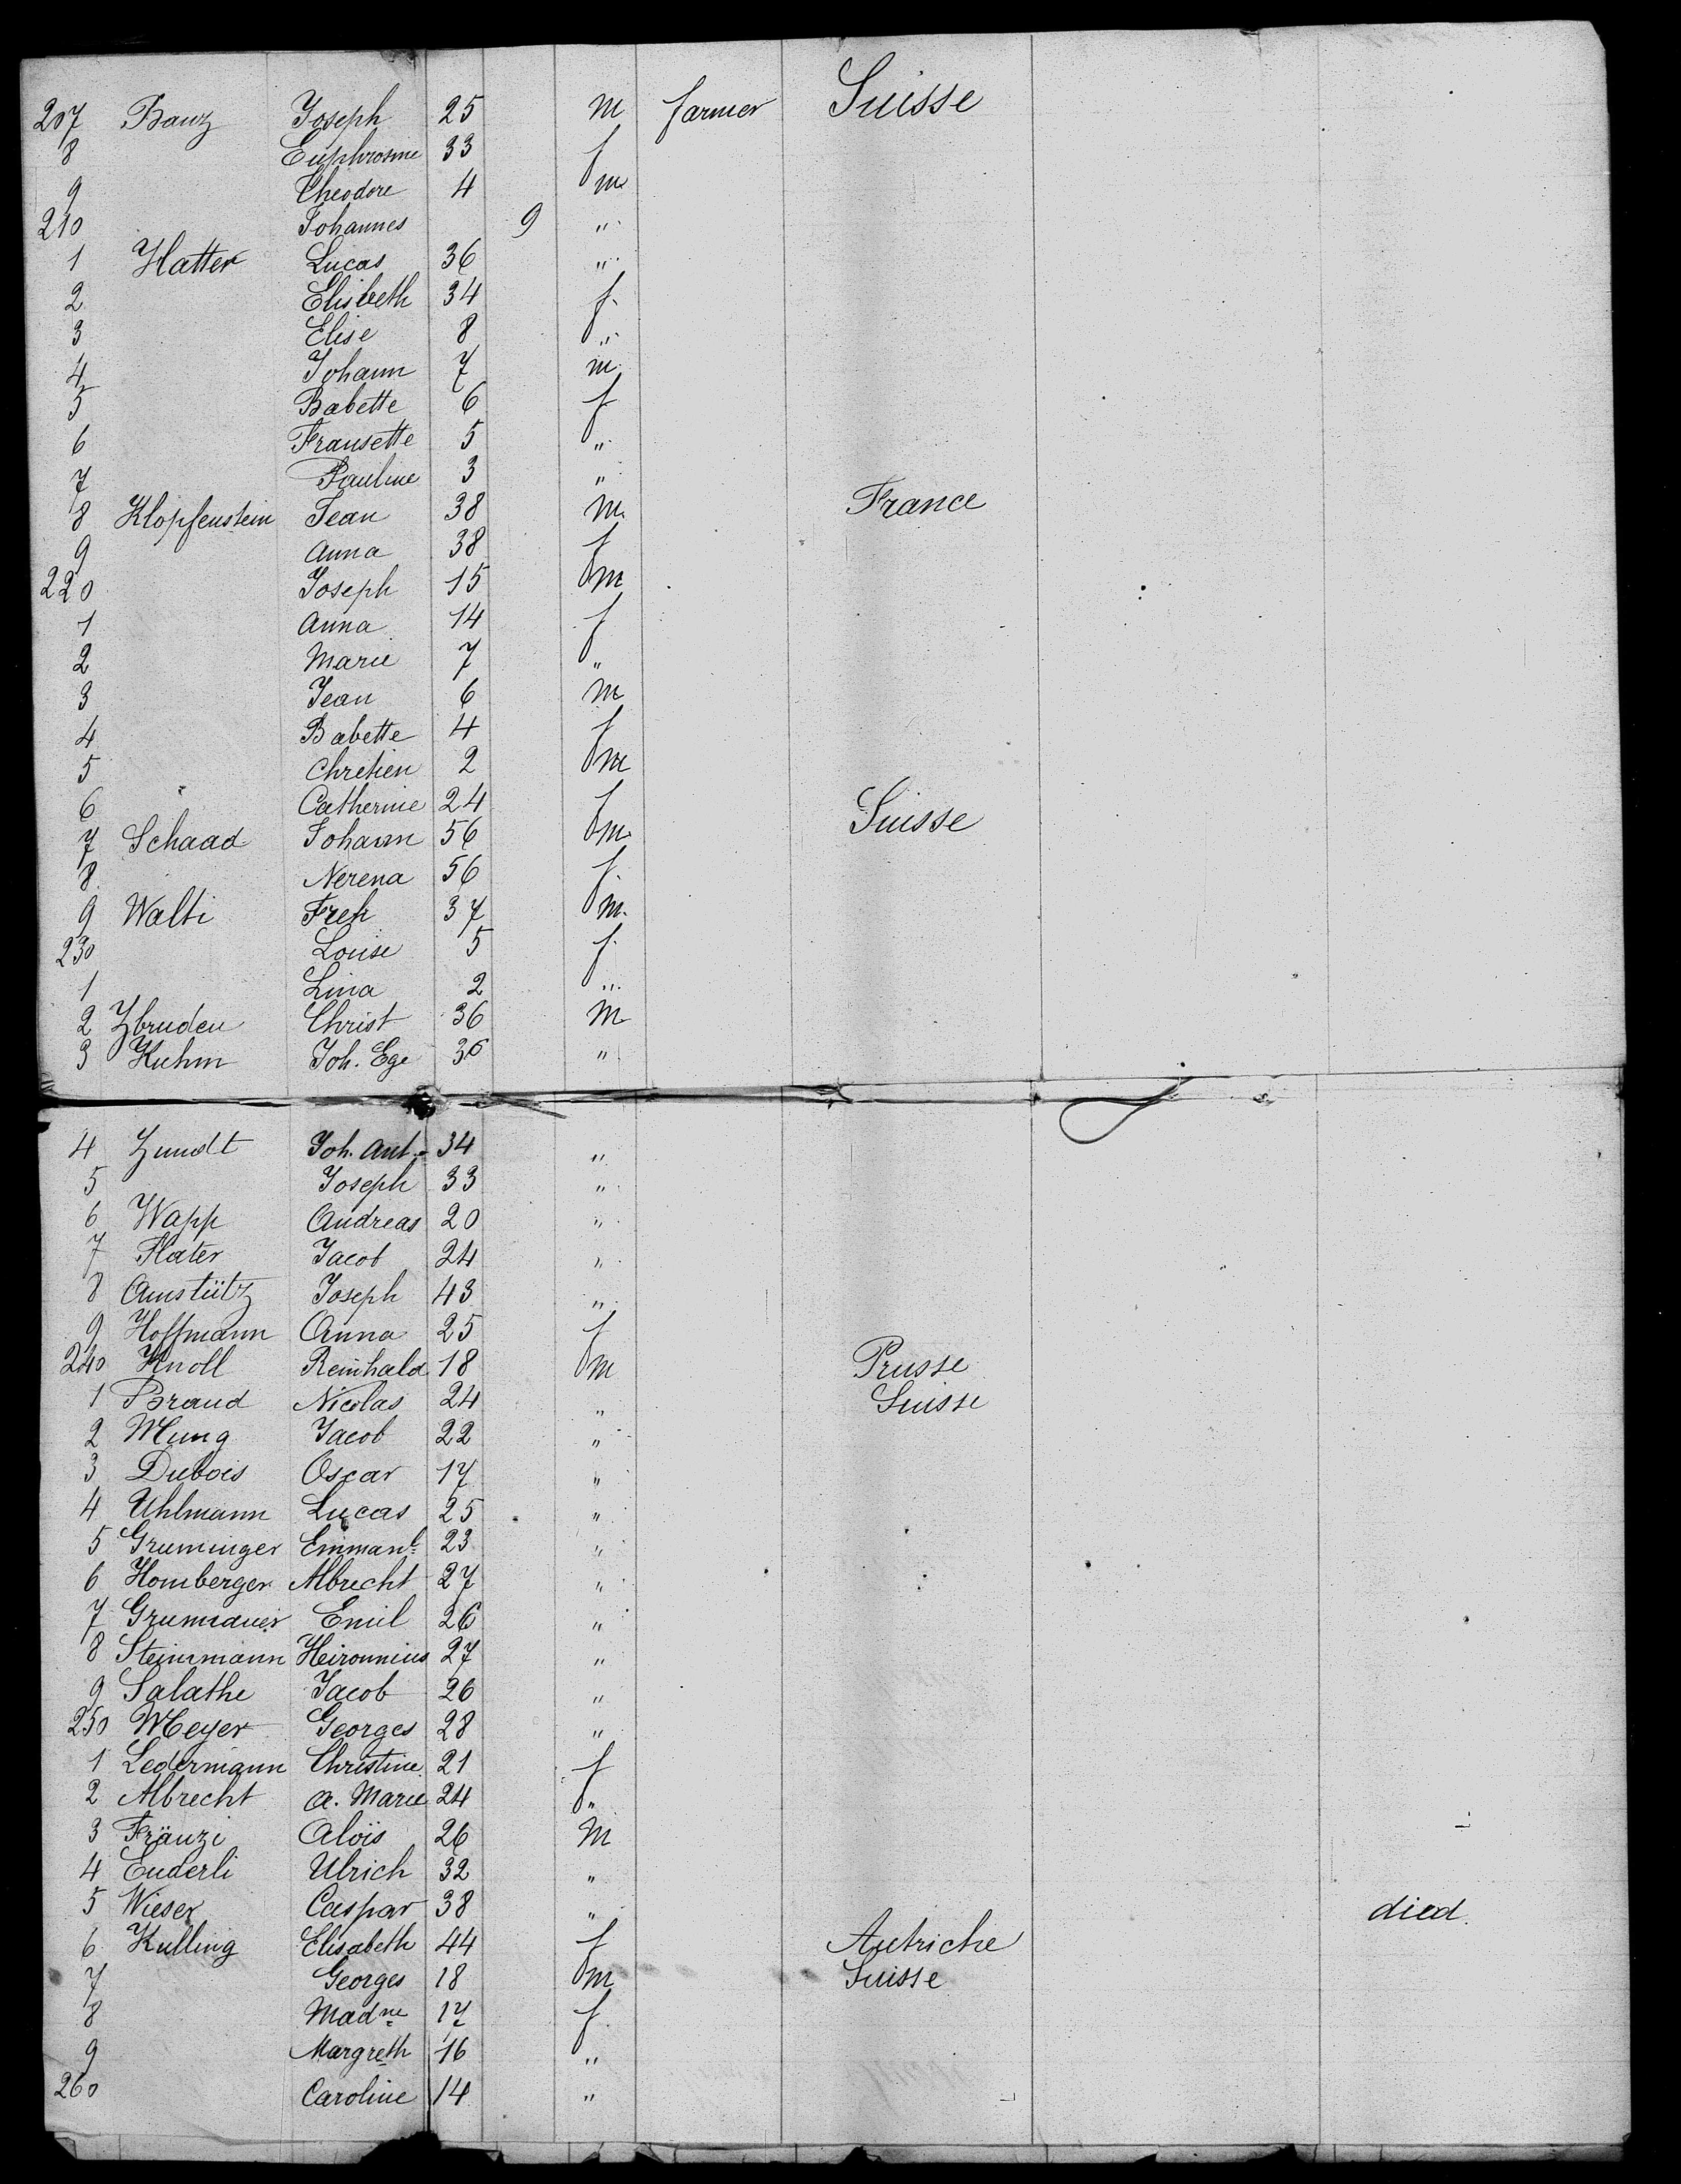 207 Banz Joseph 25 m farmer Suisse
8 Euphrosine 33 f
9 Theodore 4 m
210 Johannes 9 "
1 Hatter Lucas 36 "
2 Elisbeth 34 f
3 Elise 8 "
4 Johann 7 m
5 Babette 6 f
6 Fransette 5 "
7 Pauline 3 "
8 Klopfenstein Jean 38 m France
9 Anna 38 f
220 Joseph 15 m
1 Anna 14 f
2 Marie 7 "
3 Jean 6 m
4 Babette 4 f
5 Chretien 2 m
6 Catherine 24 f Suisse
7 Schaad Johann 56 m
8 Nerena 56 f
9 Walti 37 m
230 Louise 5 f
1 Lina 2 "
2 Zbruden Christ 36 m
3 Kuhm Joh. Ege 36 "
4 Zundt Joh. Ant. 34 "
5 Joseph 33 "
6 Wapp Andreas 20 "
7 Flater Jacob 24 "
8 Amstütz Joseph 43 "
9 Hoffmann Anna 25 f
240 Knoll Reinhald 18 m Prusse
1 Braud Nicolas 24 " Suisse
2 Mung Jacob 22 "
3 Dubois Oscar 17 "
4 Uhlmann Lucas 25 "
5 Gruminger Emmanl 23 "
6 Homberger Albrecht 27 "
7 Grumauer Emil 26 "
8 Steinmann Heironnius 27 "
9 Salathe Jacob 26 "
250 Meyer Georges 28 "
1 Ledermann Christine 21 f
2 Albrecht A. Marie 24 "
3 Fränzi Aloïs 26 m
4 Enderli Ulrich 32 "
5 Wieser Caspar 38 " died.
6 Kulling Elisabeth 44 f Autriche
7 Georges 18 m Suisse
8 Madne 17 f
9 Margreth 16 "
260 Caroline 14 "